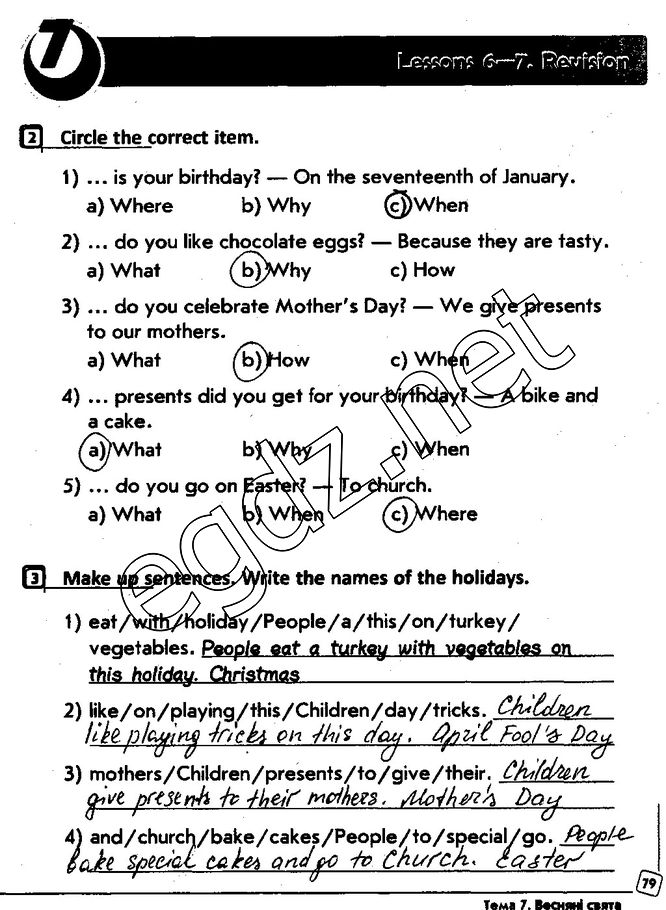 7
Lessons 6—7. Revision
2 Circle the correct item.
1) ... is your birthday? — On the seventeenth of January.
a) Where b) Why c) When
2) ... do you like chocolate eggs? — Because they are tasty.
a) What b) Why c) How
3) ... do you celebrate Mother's Day? — We give presents
to our mothers.
a) What b) How c) When
4) ... presents did you get for your birthday? — A bike and
a cake.
a) What b) Why c) When
5) ... do you go on Easter? — To church.
a) What b) When c) Where
egdz.net
3 Make up sentences. Write the names of the holidays.
1) eat/with/holiday/People/a/this/on/turkey/
vegetables. People eat a turkey with vegetables on
this holiday. Christmas
2) like/on/playing/this/Children/day/tricks. Children
like playing tricks on this day. April Fool's Day
3) mothers/Children/presents/to/give/their. Children
give presents to their mothers. Mother's Day
4) and/church/bake/cakes/People/to/special/go. People
bake special cakes and go to Church. Easter
79
Тема 7. Весняні свята